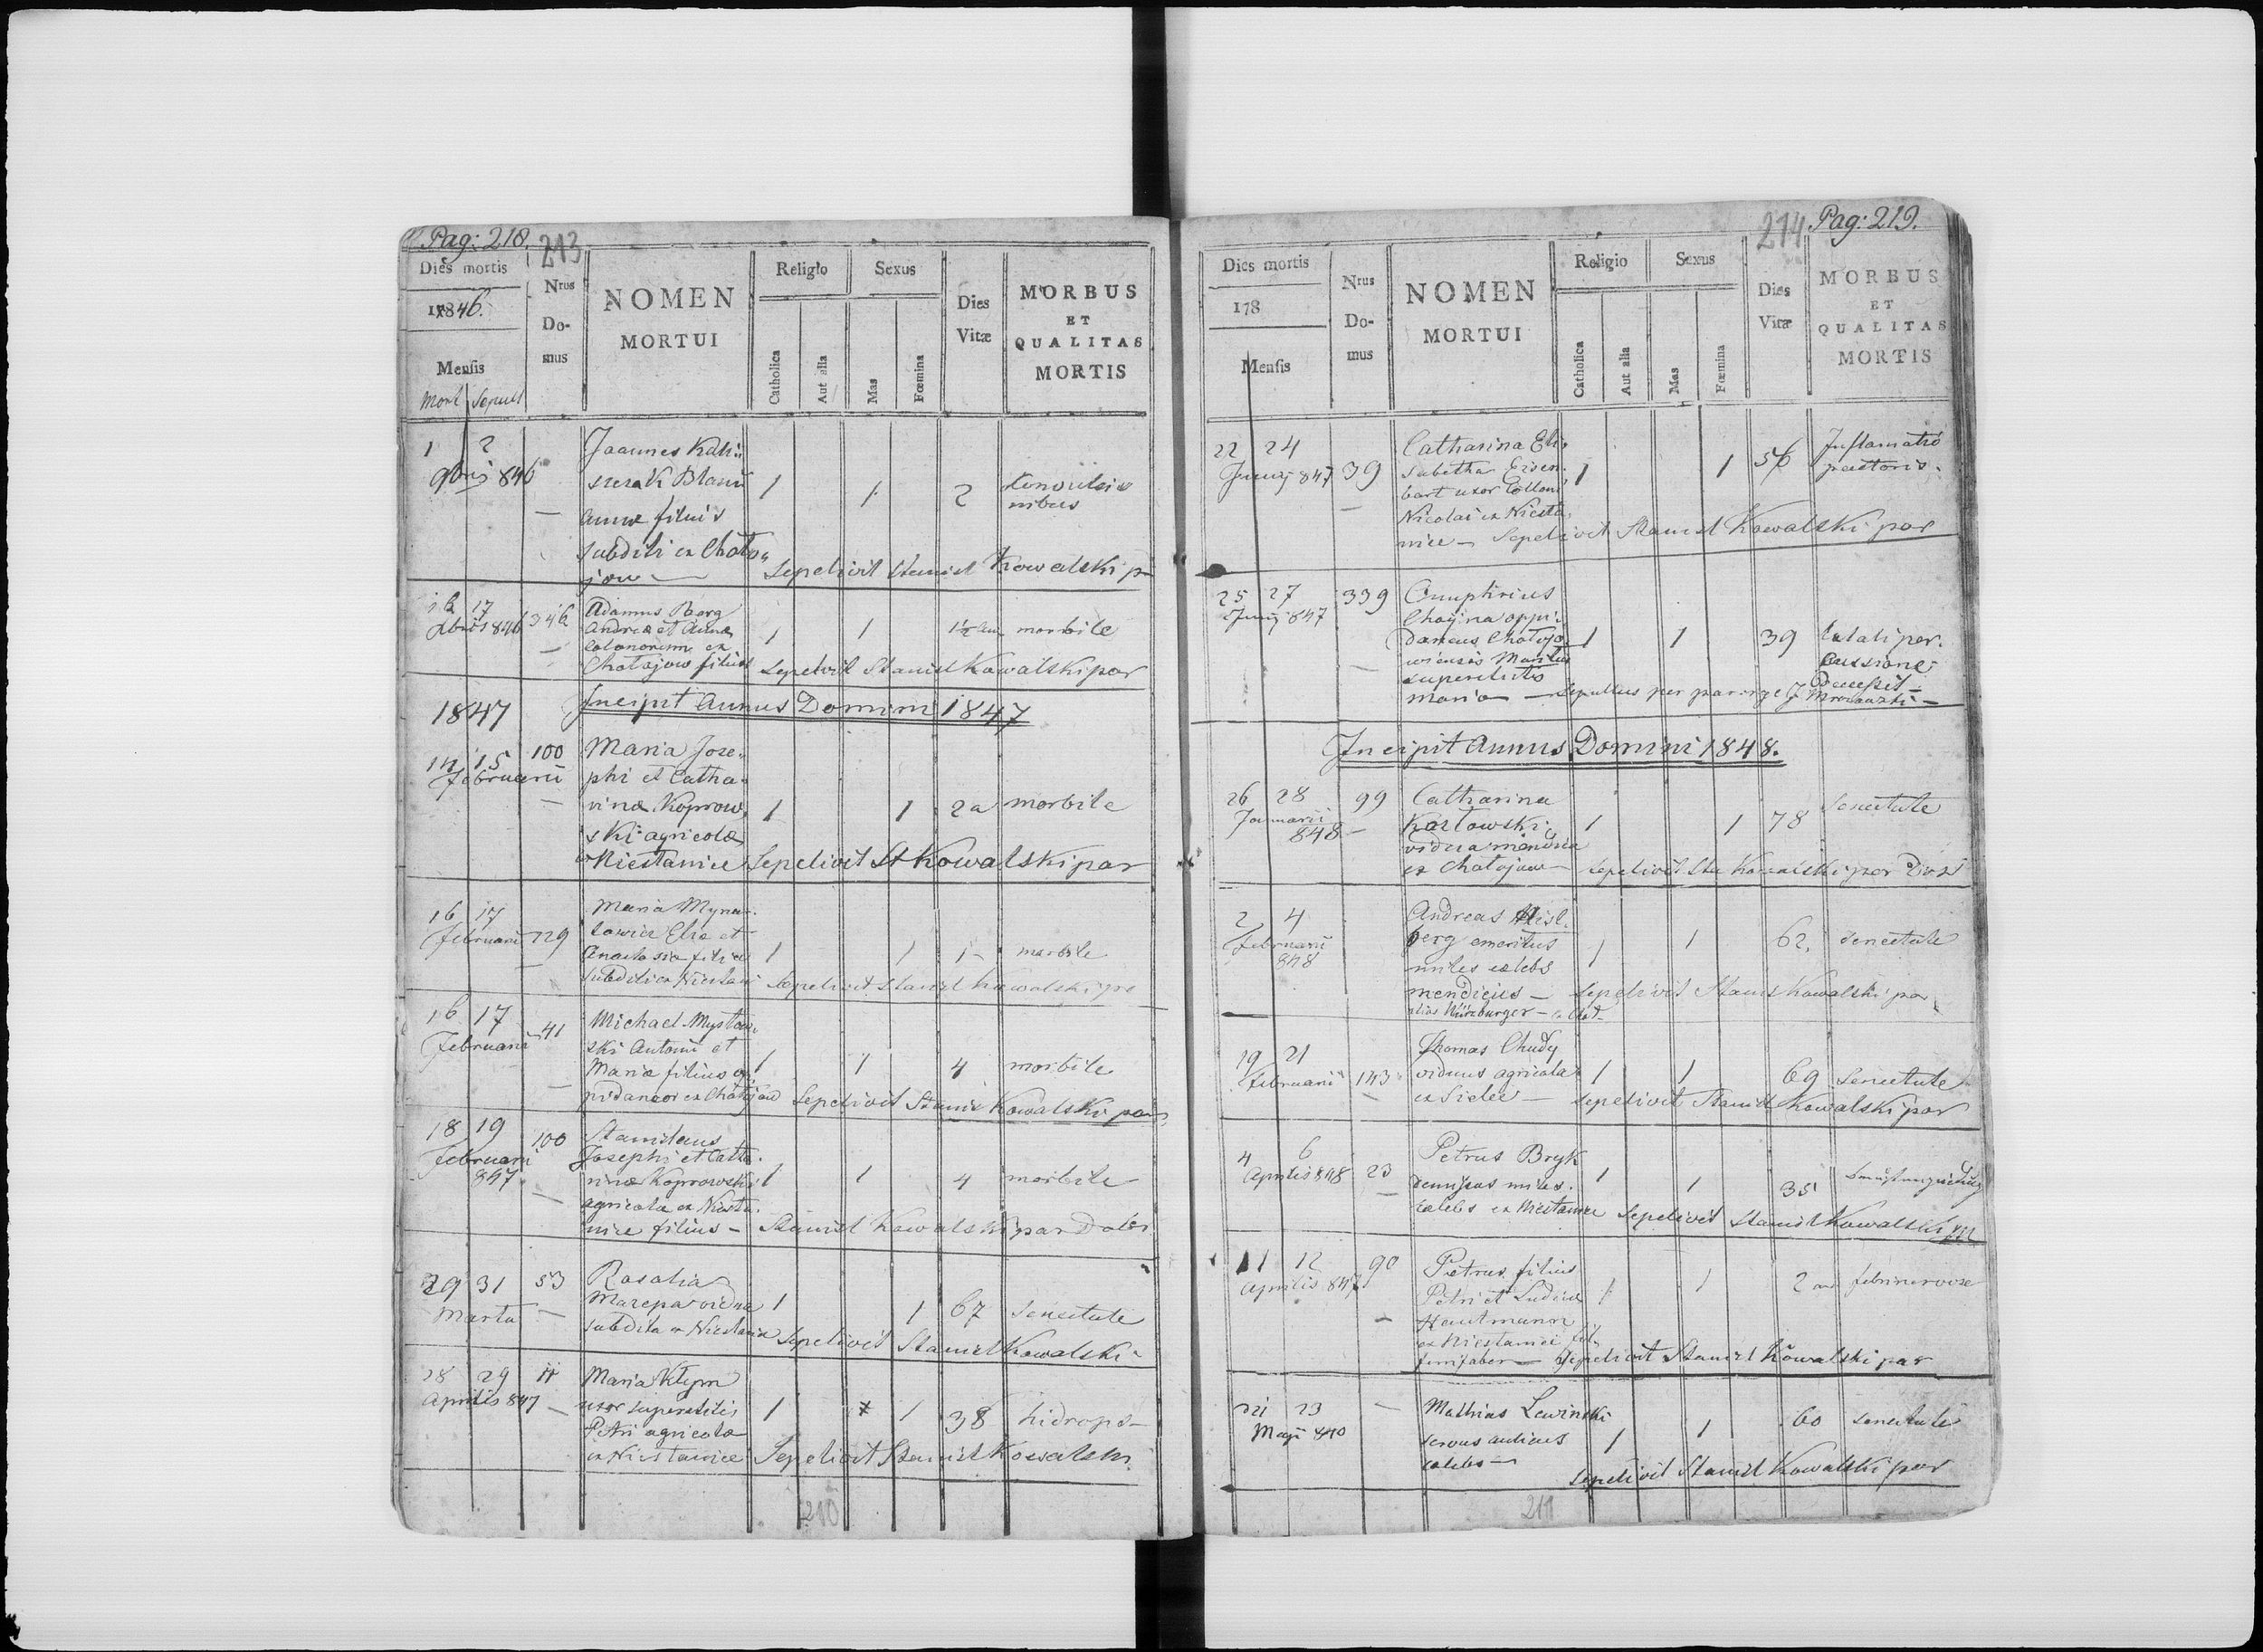 Pag: 218.
213
Dies mortis
1846.
Mensis
Mort Sepult
Nrus
Do-
mus
NOMEN
MORTUI
Religio
Catholica
Aut alia
Sexus
Mas
Fœmina
Dies
Vitæ
MORBUS
ET
QUALITAS
MORTIS
1 2 Joannes
9bris 846 1 1 2
— Annæ filius
subditi ex Choto-
jow — Sepelivit Stanisl Kowalski p
16 17 346 Adamus Berg
846 Andreæ et Annæ 1 1 1½ morbile
— Colonorum ex
Chotojow filius Sepelivit Stanisl Kowalski par
1847 Incipit Annus Domini 1847
14 15 100 Maria Jose-
Februarii phi et Catha-
— rinæ Koprow 1 1 2 a morbile
ski agricolæ
ex Niestanice Sepelivit St Kowalski par
16 17 Maria
Februarii 129 et
— Anastasia filia 1 1 1 morbile
subditi ex Niestani Sepelivit Stanisl Kowalski par
16 17 41 Michael
Februarii ski Antonii et
— Mariæ filius 1 1 4 morbile
ex Chotojow Sepelivit Stanis Kowalski par
18 19 100 Stanislaus
Februarii Josephi et Catha-
847 rinæ Koprowski 1 1 4 morbile
— agricolæ ex Niesta-
nice filius — Stanisl Kowalski par
29 31 53 Rosalia
Martii — Mazepa vidua 1 1 67 senectute
subdita ex Niestanice Sepelivit Stanisl Kowalski
28 29 11 Maria Klym
Aprilis 847 — uxor superstitis 1 1 38 hidrops —
Petri agricolæ
ex Niestanice Sepelivit Stanisl Kowalski
210
214
Pag: 219.
Dies mortis
178
Mensis
Nrus
Do-
mus
NOMEN
MORTUI
Religio
Catholica
Aut alia
Sexus
Mas
Fœmina
Dies
Vitæ
MORBUS
ET
QUALITAS
MORTIS
22 24 Catharina Eli-
Junij 847 39 sabetha Eisen- 1 1 56 Inflamatio
— bart uxor Colloni pectoris.
Nicolai ex Niesta-
nice — Sepelivit Stanisl Kowalski par
25 27 339 Onuphrius
Junij 847 oppi-
danus Chotojo- 1 1 39
— wiensis Maritus cussione
superstitis decessit —
Maria — Sepultus per
Incipit Annus Domini 1848.
26 28 99 Catharina senectute
Januarii Kozlowski 1 1 78
848 — vidua
ex Chotojow — Sepelivit Sta Kowalski par
2 4 Andreas
Februarii berg emeritus 1 1 62. senectute
848 miles celebs
mendicus — Sepelivit Stanis Kowalski par
alias Würzburger —
19 21 Thomas Chudy
Februarii 143 viduus agricola 1 1 69 Senectute
— ex Sielec — Sepelivit Stanisl Kowalski par
4 6 Petrus Bryk
Aprilis 848 23 miles 1 1 35
— celebs ex Niestanice Sepelivit Stanisl Kowalski par
11 12 90 Petrus filius
Aprilis 1 1 2 an febri nervose
— Hautmann
ex Niestanice
Sepelivit Stanisl Kowalski par
21 23 — Mathias Lewinski 60 senectute
Maji servus 1 1
celebs —
Sepelivit Stanisl Kowalski par
211